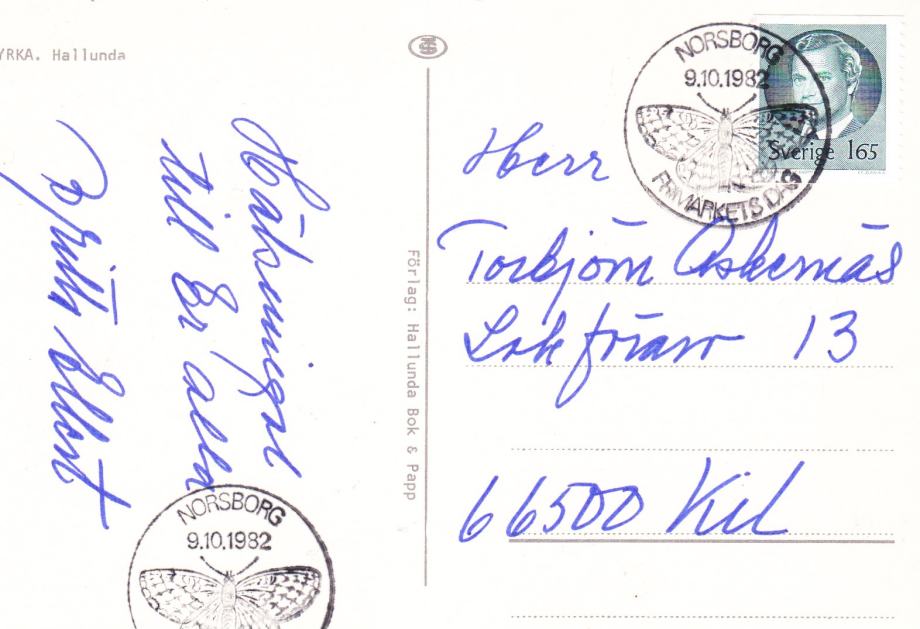 YRKA. Hallunda
Hälsningar
till Er alla
Britta
Förlag: Hallunda Bok & Papp
NORSBORG
9.10.1982
FRIMÄRKETS DAG
Sverige 165
Herr
Torbjörn Askernäs
13
66500 Kil
NORSBORG
9.10.1982